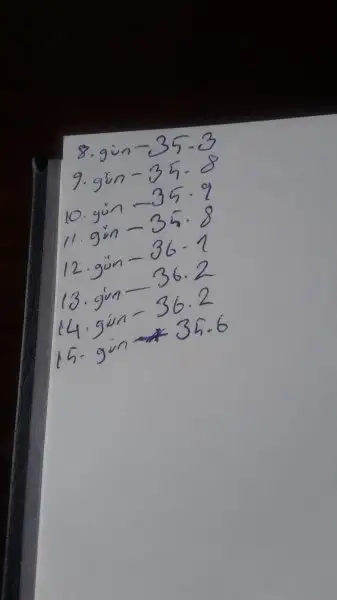 8. gün - 35.3
9. gün - 35.8
10. gün - 35.9
11. gün - 35.8
12. gün - 36.1
13. gün - 36.2
14. gün - 36.2
15. gün - 35.6